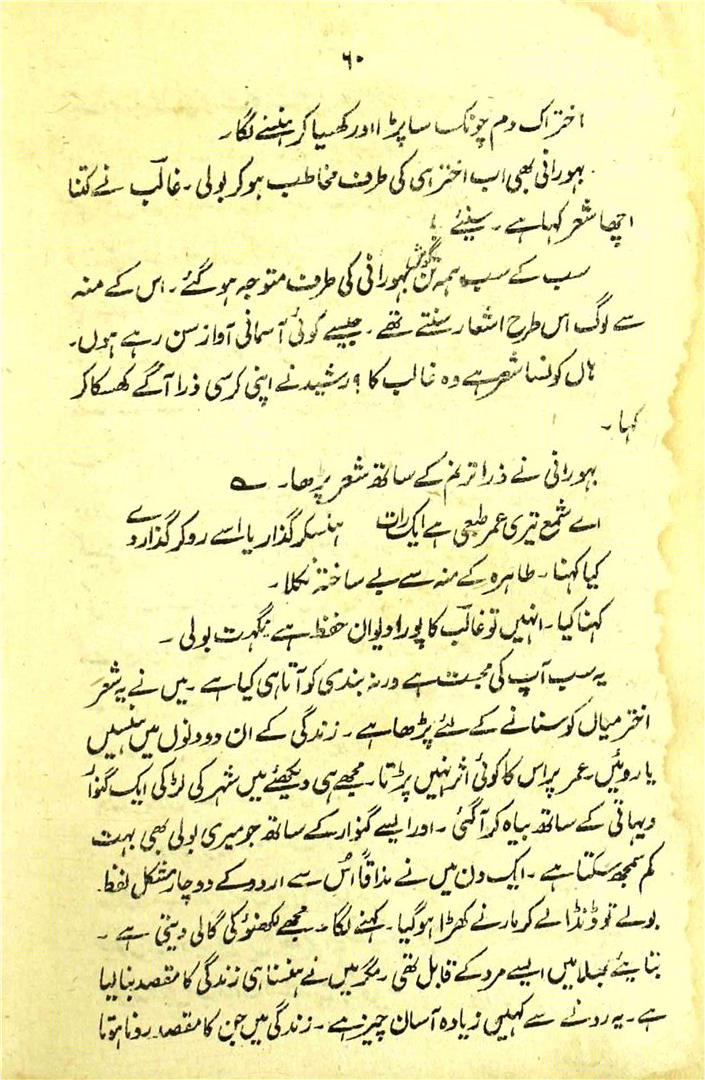 ۶۰
اختر اک دم چونک سا پڑا اور کھسیا کر ہنسنے لگا۔
بہورانی بھی اب اختر ہی کی طرف مخاطب ہو کر بولی۔ غالبؔ نے کتنا
اچھا شعر کہا ہے۔ سنیئے !
سب کے سب ہمہ تن گوش بہورانی کی طرف متوجہ ہو گئے۔ اس کے منہ
سے لوگ اس طرح اشعار سنتے تھے۔ جیسے کوئی آسمانی آواز سن رہے ہوں۔
ہاں کونسا شعر ہے وہ غالب کا ؟ رشید نے اپنی کرسی ذرا آگے کھسکا کر
کہا۔
بہورانی نے ذرا ترنم کے ساتھ شعر پڑھا۔ ؎
اے شمع تیری عمر طبعی ہے ایک رات ہنسکر گذار یا اسے رو کر گذار دے
کیا کہنا۔ طاہرہ کے منہ سے بے ساختہ نکلا۔
کہنا کیا۔ انہیں تو غالبؔ کا پورا دیوان حفظ ہے نگہت بولی۔
یہ سب آپ کی محبت ہے ورنہ بندی کو آتا ہی کیا ہے۔ میں نے یہ شعر
اختر میاں کو سنانے کے لئے پڑھا ہے۔ زندگی کے ان دو دنوں میں ہنسیں
یا روئیں۔ عمر پر اس کا کوئی اثر نہیں پڑتا۔ مجھے ہی دیکھئے میں شہر کی لڑکی ایک گنوار
دیہاتی کے ساتھ بیاہ کر آ گئی۔ اور ایسے گنوار کے ساتھ جو میری بولی بھی بہت
کم سمجھ سکتا ہے۔ ایک دن میں نے مذاقاً اُس سے اردو کے دو چار مشکل لفظ
بولے تو ڈنڈا لے کر مارنے کھڑا ہو گیا۔ کہنے لگا۔ مجھے لکھنؤ کی گالی دیتی ہے۔
بتایئے بھلا میں ایسے مرد کے قابل تھی۔ مگر میں نے ہنسنا ہی زندگی کا مقصد بنا لیا
ہے۔ یہ رونے سے کہیں زیادہ آسان چیز ہے۔ زندگی میں جن کا مقصد رونا ہوتا